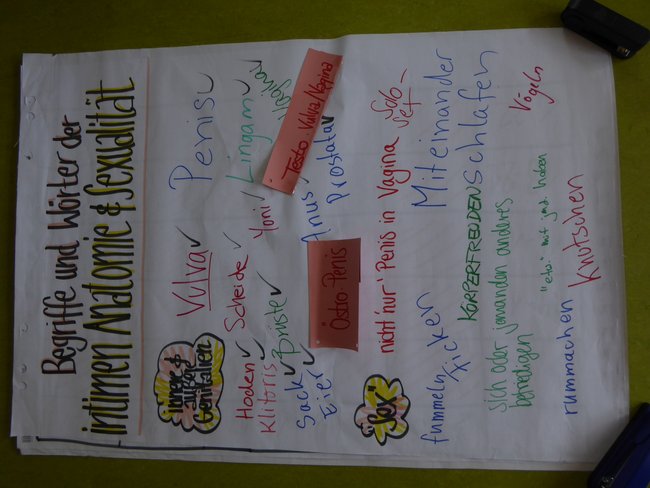 Begriffe und Wörter der
intimen Anatomie & Sexualität
innere &
äußere
Genitalien
Vulva ✓
Penis ✓
Hoden ✓
Scheide ✓
Yoni ✓
Lingam ✓
Vagina ✓
Klitoris ✓
Brüste ✓
Sack ✓
Eier ✓
Anus ✓
Prostata ✓
Testo Vulva/Vagina
Östro Penis
"Sex"
nicht 'nur' Penis in Vagina
Solo
Sex
fummeln
Ficken
Miteinander
schlafen
KÖRPERFREUDEN
sich oder jemanden anderes
befriedigen
"etw." mit jmd. haben
Vögeln
rummachen
Knutschen